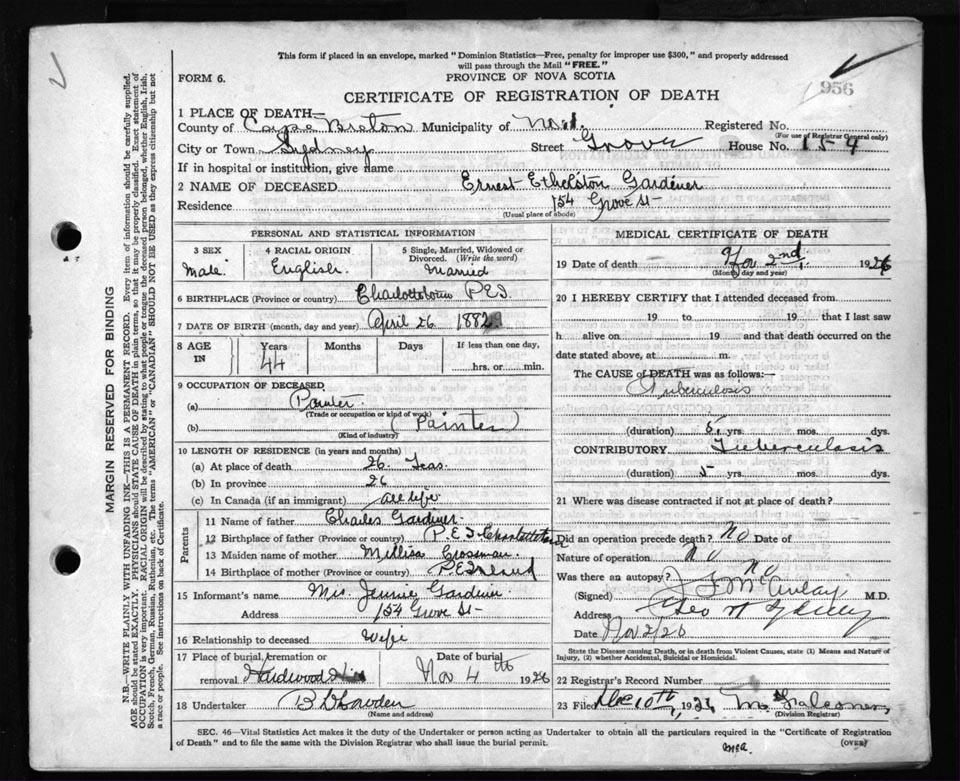 This form if placed in an envelope, marked "Dominion Statistics—Free, penalty for improper use $300," and properly addressed
will pass through the Mail "FREE."
FORM 6.
PROVINCE OF NOVA SCOTIA
956
CERTIFICATE OF REGISTRATION OF DEATH
1 PLACE OF DEATH—
County of Cape Breton Municipality of Registered No.
(For use of Registrar General only)
City or Town Sydney Street Grove House No. 154
If in hospital or institution, give name
2 NAME OF DECEASED Ernest Ethelston Gardiner
Residence 154 Grove St-
(Usual place of abode)
PERSONAL AND STATISTICAL INFORMATION
3 SEX Male
4 RACIAL ORIGIN English.
5 Single, Married, Widowed or Divorced. (Write the word) Married
6 BIRTHPLACE (Province or country) Charlottetown P.E.I.
7 DATE OF BIRTH (month, day and year) April 26 1882
8 AGE IN Years 44 Months Days If less than one day, hrs. or min.
9 OCCUPATION OF DECEASED.
(a) Painter.
(Trade or occupation or kind of work)
(b) (Painter)
(Kind of industry)
10 LENGTH OF RESIDENCE (in years and months)
(a) At place of death 26
(b) In province 26
(c) In Canada (if an immigrant) all life
Parents
11 Name of father Charles Gardiner.
12 Birthplace of father (Province or country) P.E.I. Charlottetown
13 Maiden name of mother Millisa Crosman.
14 Birthplace of mother (Province or country) P.E.Island
15 Informant's name Mrs. Jennie Gardiner
Address 154 Grove St-
16 Relationship to deceased Wife
17 Place of burial, cremation or removal Hardwood Hill
Date of burial Nov 4th 1926
18 Undertaker
(Name and address)
MEDICAL CERTIFICATE OF DEATH
19 Date of death Nov 2nd, 1926
(Month, day and year)
20 I HEREBY CERTIFY that I attended deceased from
19 to 19 that I last saw
h alive on 19 and that death occurred on the
date stated above, at m.
The CAUSE of DEATH was as follows:
Tuberculosis
(duration) 5 yrs. mos. dys.
CONTRIBUTORY Tuberculosis
(duration) 5 yrs. mos. dys.
21 Where was disease contracted if not at place of death?
Did an operation precede death? NO Date of
Nature of operation. No
Was there an autopsy? No
(Signed) M.D.
Address
Date Nov 2/26
State the Disease causing Death, or in death from Violent Causes, state (1) Means and Nature of
Injury, (2) whether Accidental, Suicidal or Homicidal.
22 Registrar's Record Number
23 Filed Dec 10th, 1926
(Division Registrar)
SEC. 46—Vital Statistics Act makes it the duty of the Undertaker or person acting as Undertaker to obtain all the particulars required in the "Certificate of Registration
of Death" and to file the same with the Division Registrar who shall issue the burial permit.
(OVER)
MARGIN RESERVED FOR BINDING
N.B.—WRITE PLAINLY WITH UNFADING INK—THIS IS A PERMANENT RECORD. Every item of information should be carefully supplied.
AGE should be stated EXACTLY. PHYSICIANS should STATE CAUSE OF DEATH in plain terms, so that it may be properly classified. Exact statement of
OCCUPATION is very important. RACIAL ORIGIN will be described by stating to what people or tongue the deceased person belonged, whether English, Irish,
Scotch, French, German, Russian, Ruthenian, etc. The terms "AMERICAN" or "CANADIAN" SHOULD NOT BE USED as they express citizenship but not
a race or people. See instructions on back of Certificate.